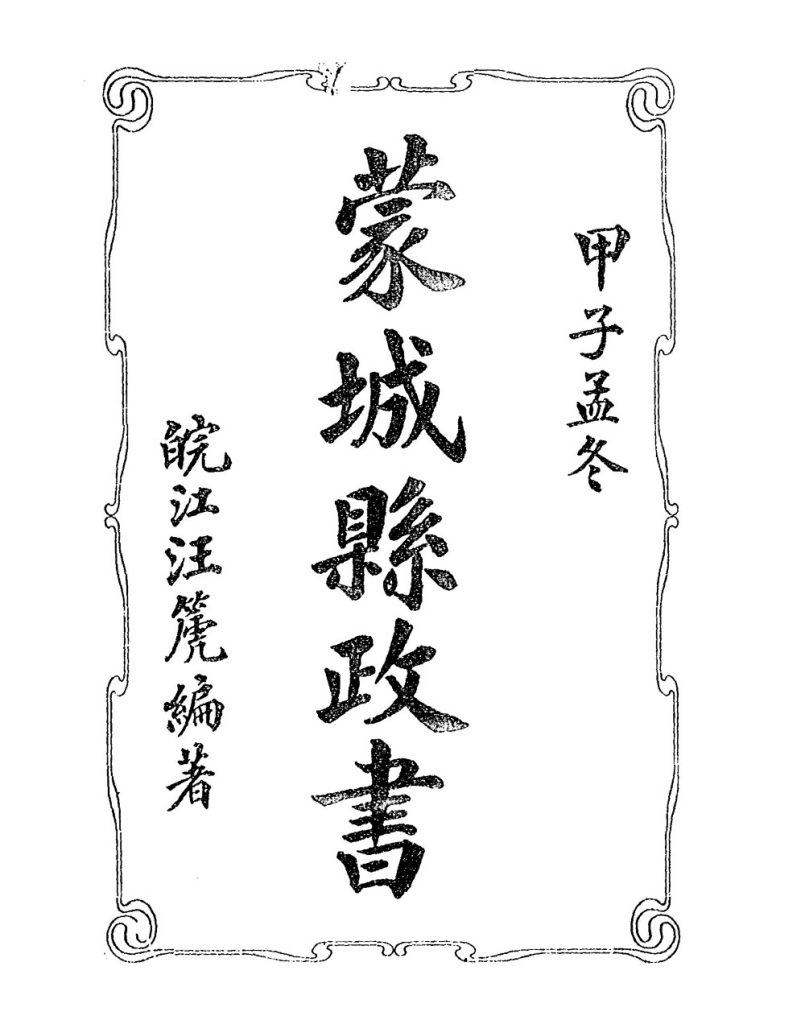 甲子孟冬
蒙城縣政書
皖江汪篪編著